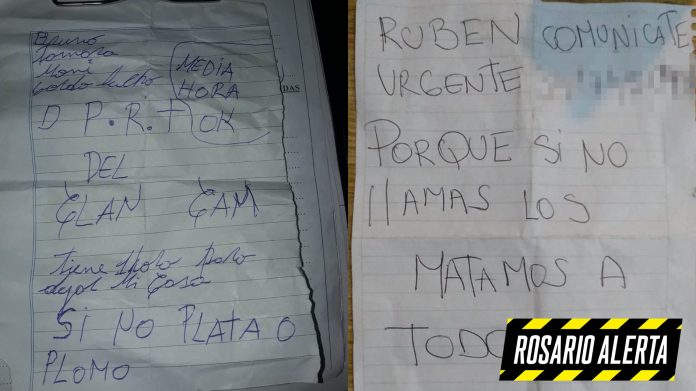 Bruno
MEDIA
HORA
DAS
D P.R.T OK
DEL
CLAN CAM
Tiene
dejar Mi Casa
SI NO PLATA O
PLOMO
RUBEN COMUNICATE
URGENTE
PORQUE SI NO
LLAMAS LOS
MATAMOS A
TODO
ROSARIO ALERTA